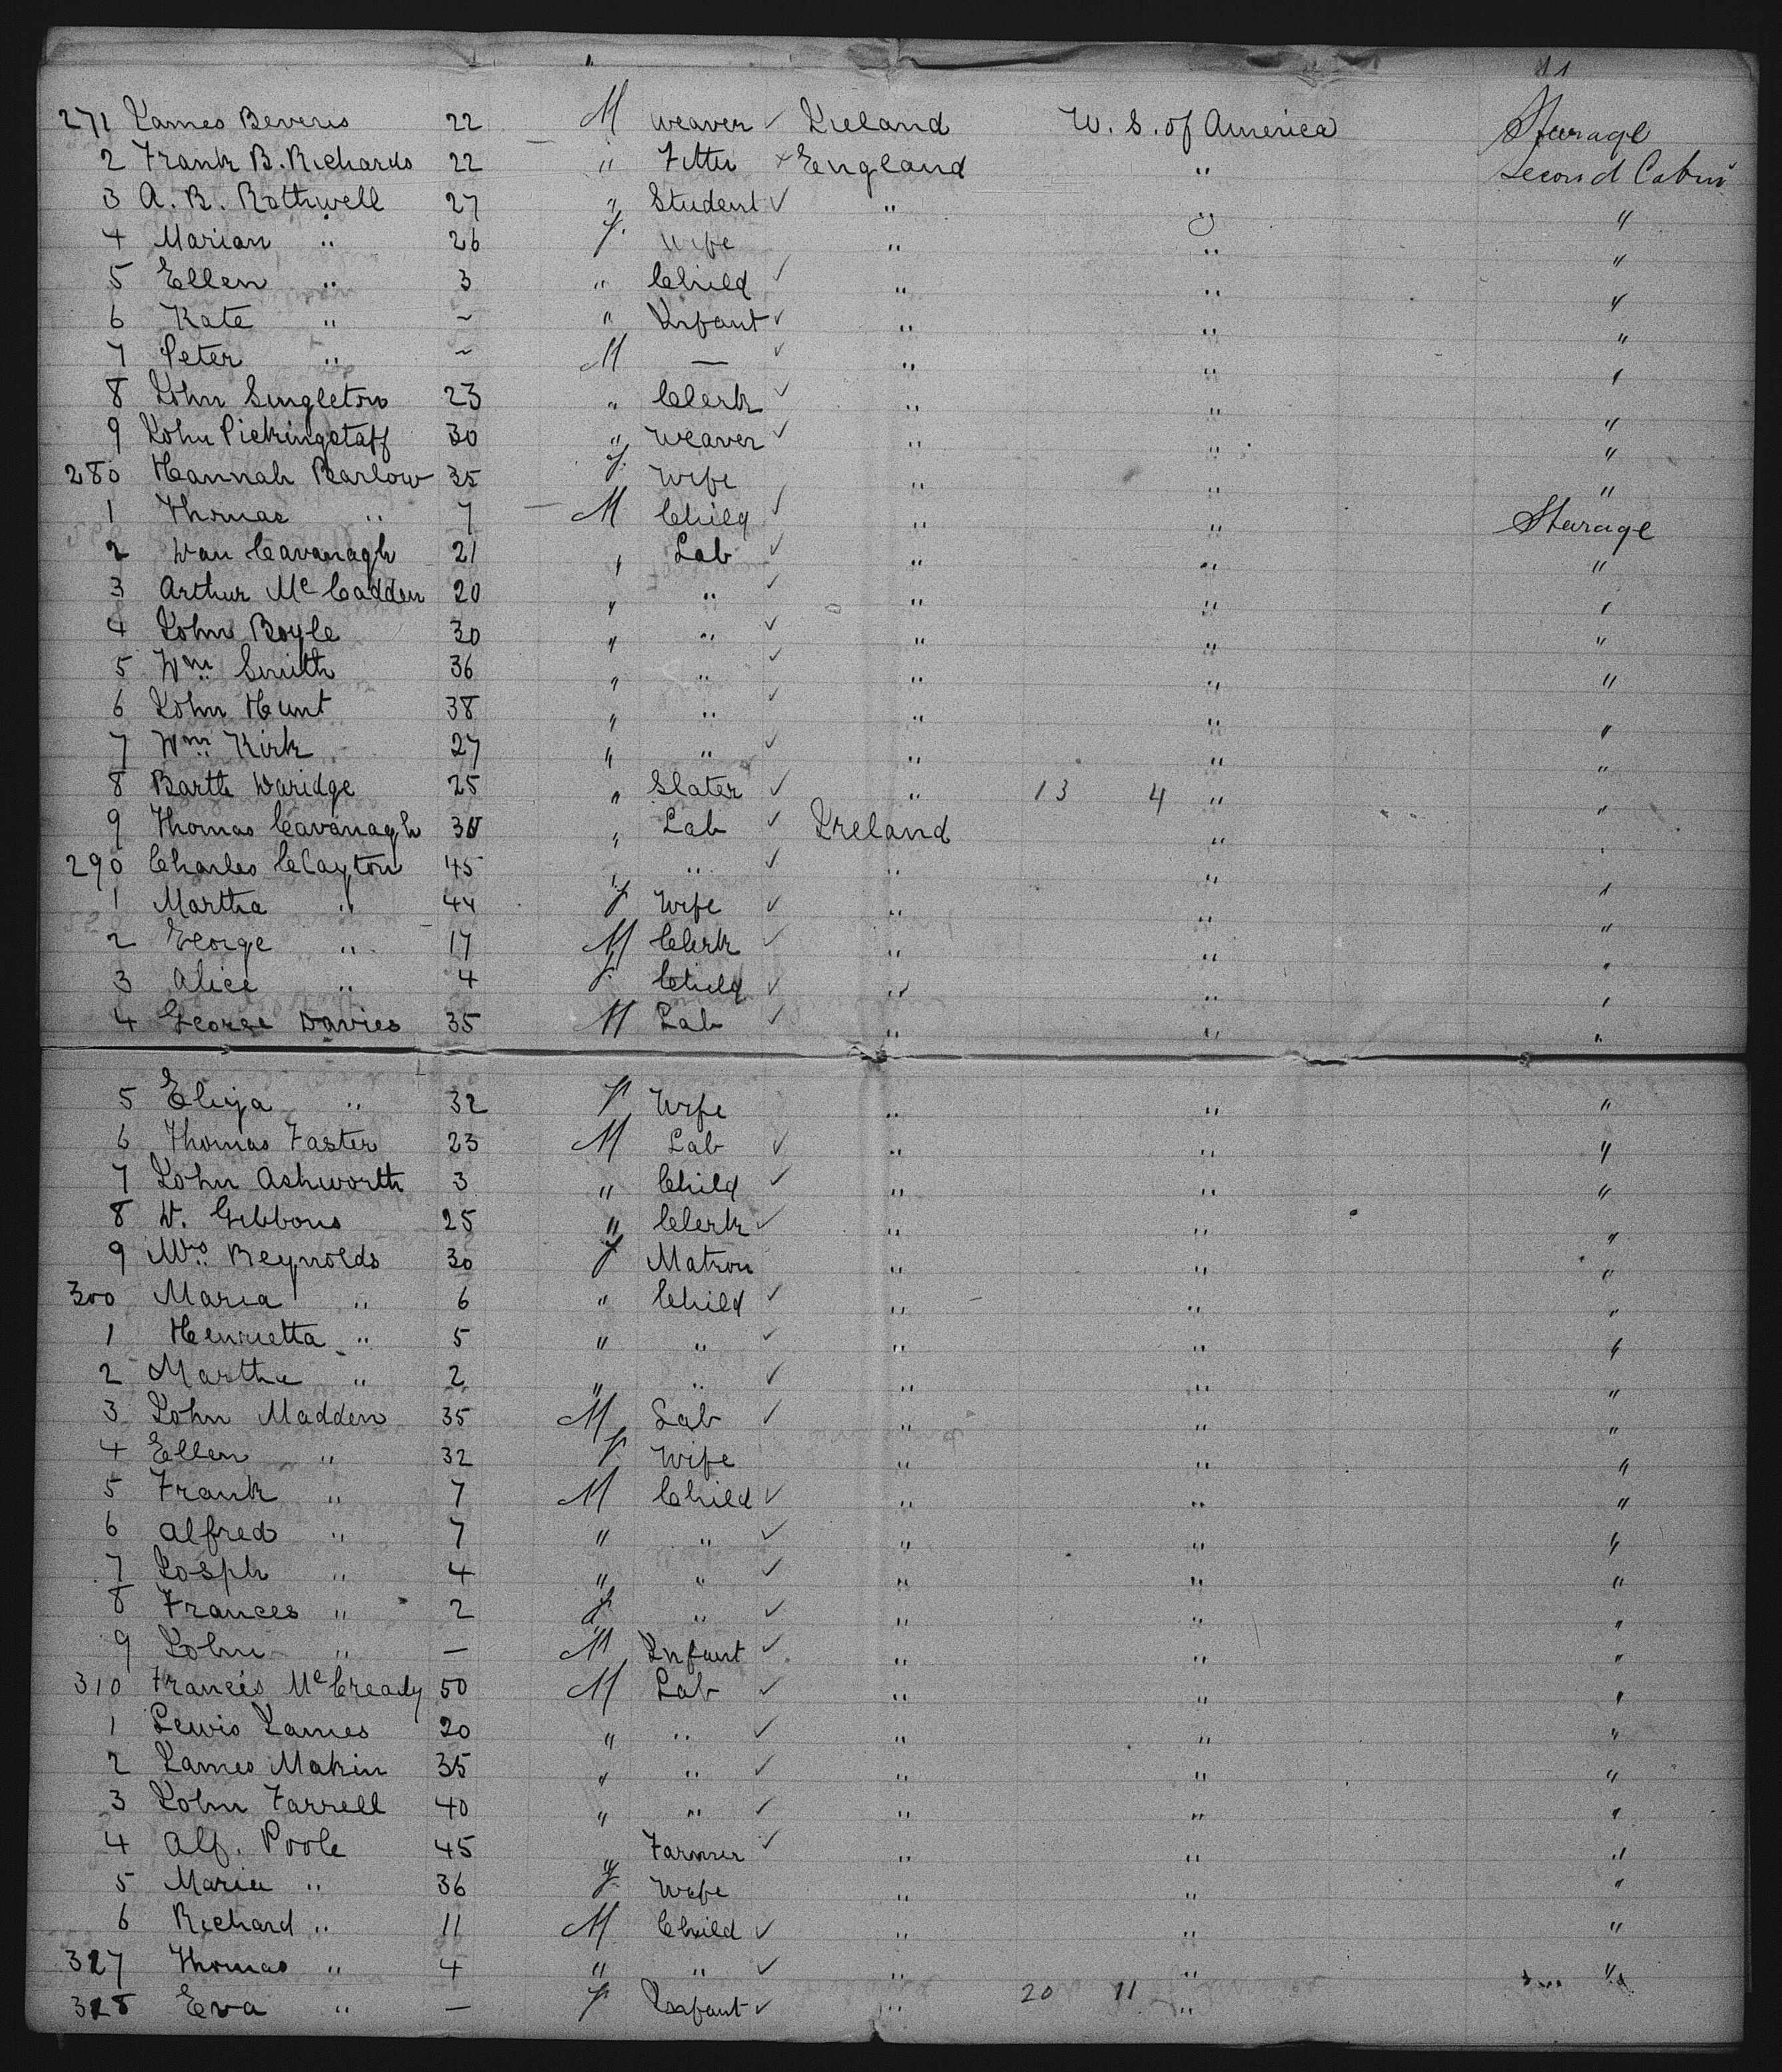 11
271 James Beveris 22 M Weaver ✓ Ireland U. S. of America Steerage
2 Frank B. Richards 22 " Fitter × England " Second Cabin
3 A. R. Rothwell 27 " Student ✓ " " "
4 Marian " 26 F. Wife " " "
5 Ellen " 3 " Child ✓ " " "
6 Kate " ~ " Infant ✓ " " "
7 Peter " ~ M — ✓ " " "
8 John Singleton 23 " Clerk ✓ " " "
9 John Pickingstaff 30 " Weaver ✓ " " "
280 Hannah Barlow 35 F. Wife " " "
1 Thomas " 7 M Child ✓ " " Steerage
2 Dan Cavanagh 21 " Lab ✓ " " "
3 Arthur Mc Cadden 20 " " ✓ " " "
4 John Boyle 30 " " ✓ " " "
5 Wm. Smith 36 " " ✓ " " "
6 John Hunt 38 " " ✓ " " "
7 Wm. Kirk 27 " " ✓ " " "
8 Barth Waridge 25 " Slater ✓ " 13 4 " "
9 Thomas Cavanagh 30 " Lab ✓ Ireland " "
290 Charles Clayton 45 " " ✓ " " "
1 Martha " 44 F Wife ✓ " " "
2 George " 17 M Clerk ✓ " " "
3 Alice " 4 F Child ✓ " " "
4 George Davies 35 M Lab ✓ " " "
5 Eliza " 32 F Wife " " "
6 Thomas Faster 23 M Lab ✓ " " "
7 John Ashworth 3 " Child ✓ " " "
8 W. Gibbons 25 " Clerk ✓ " " "
9 Mrs. Reynolds 30 F Matron " " "
300 Maria " 6 " Child ✓ " " "
1 Henrietta " 5 " " ✓ " " "
2 Martha " 2 " " ✓ " " "
3 John Madden 35 M Lab ✓ " " "
4 Ellen " 32 F Wife " " "
5 Frank " 7 M Child ✓ " " "
6 Alfred " 7 " " ✓ " " "
7 Josph " 4 " " ✓ " " "
8 Frances " 2 F " ✓ " " "
9 John " — M Infant ✓ " " "
310 Francis McCready 50 M Lab ✓ " " "
1 Lewis James 20 " " ✓ " " "
2 James Makin 35 " " ✓ " " "
3 John Farrell 40 " " ✓ " " "
4 Alf. Poole 45 " Farmer ✓ " " "
5 Maria " 36 F Wife " " "
6 Richard " 11 M Child ✓ " " "
327 Thomas " 4 " " ✓ " " "
328 Eva " — F Infant ✓ " 20 11 "